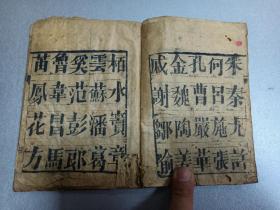 朱秦尤許
何呂施張
孔曹嚴華
金魏陶姜
戚謝鄒喻
柏水竇章
雲蘇潘葛
奚范彭郎
魯韋昌馬
苗鳳花方